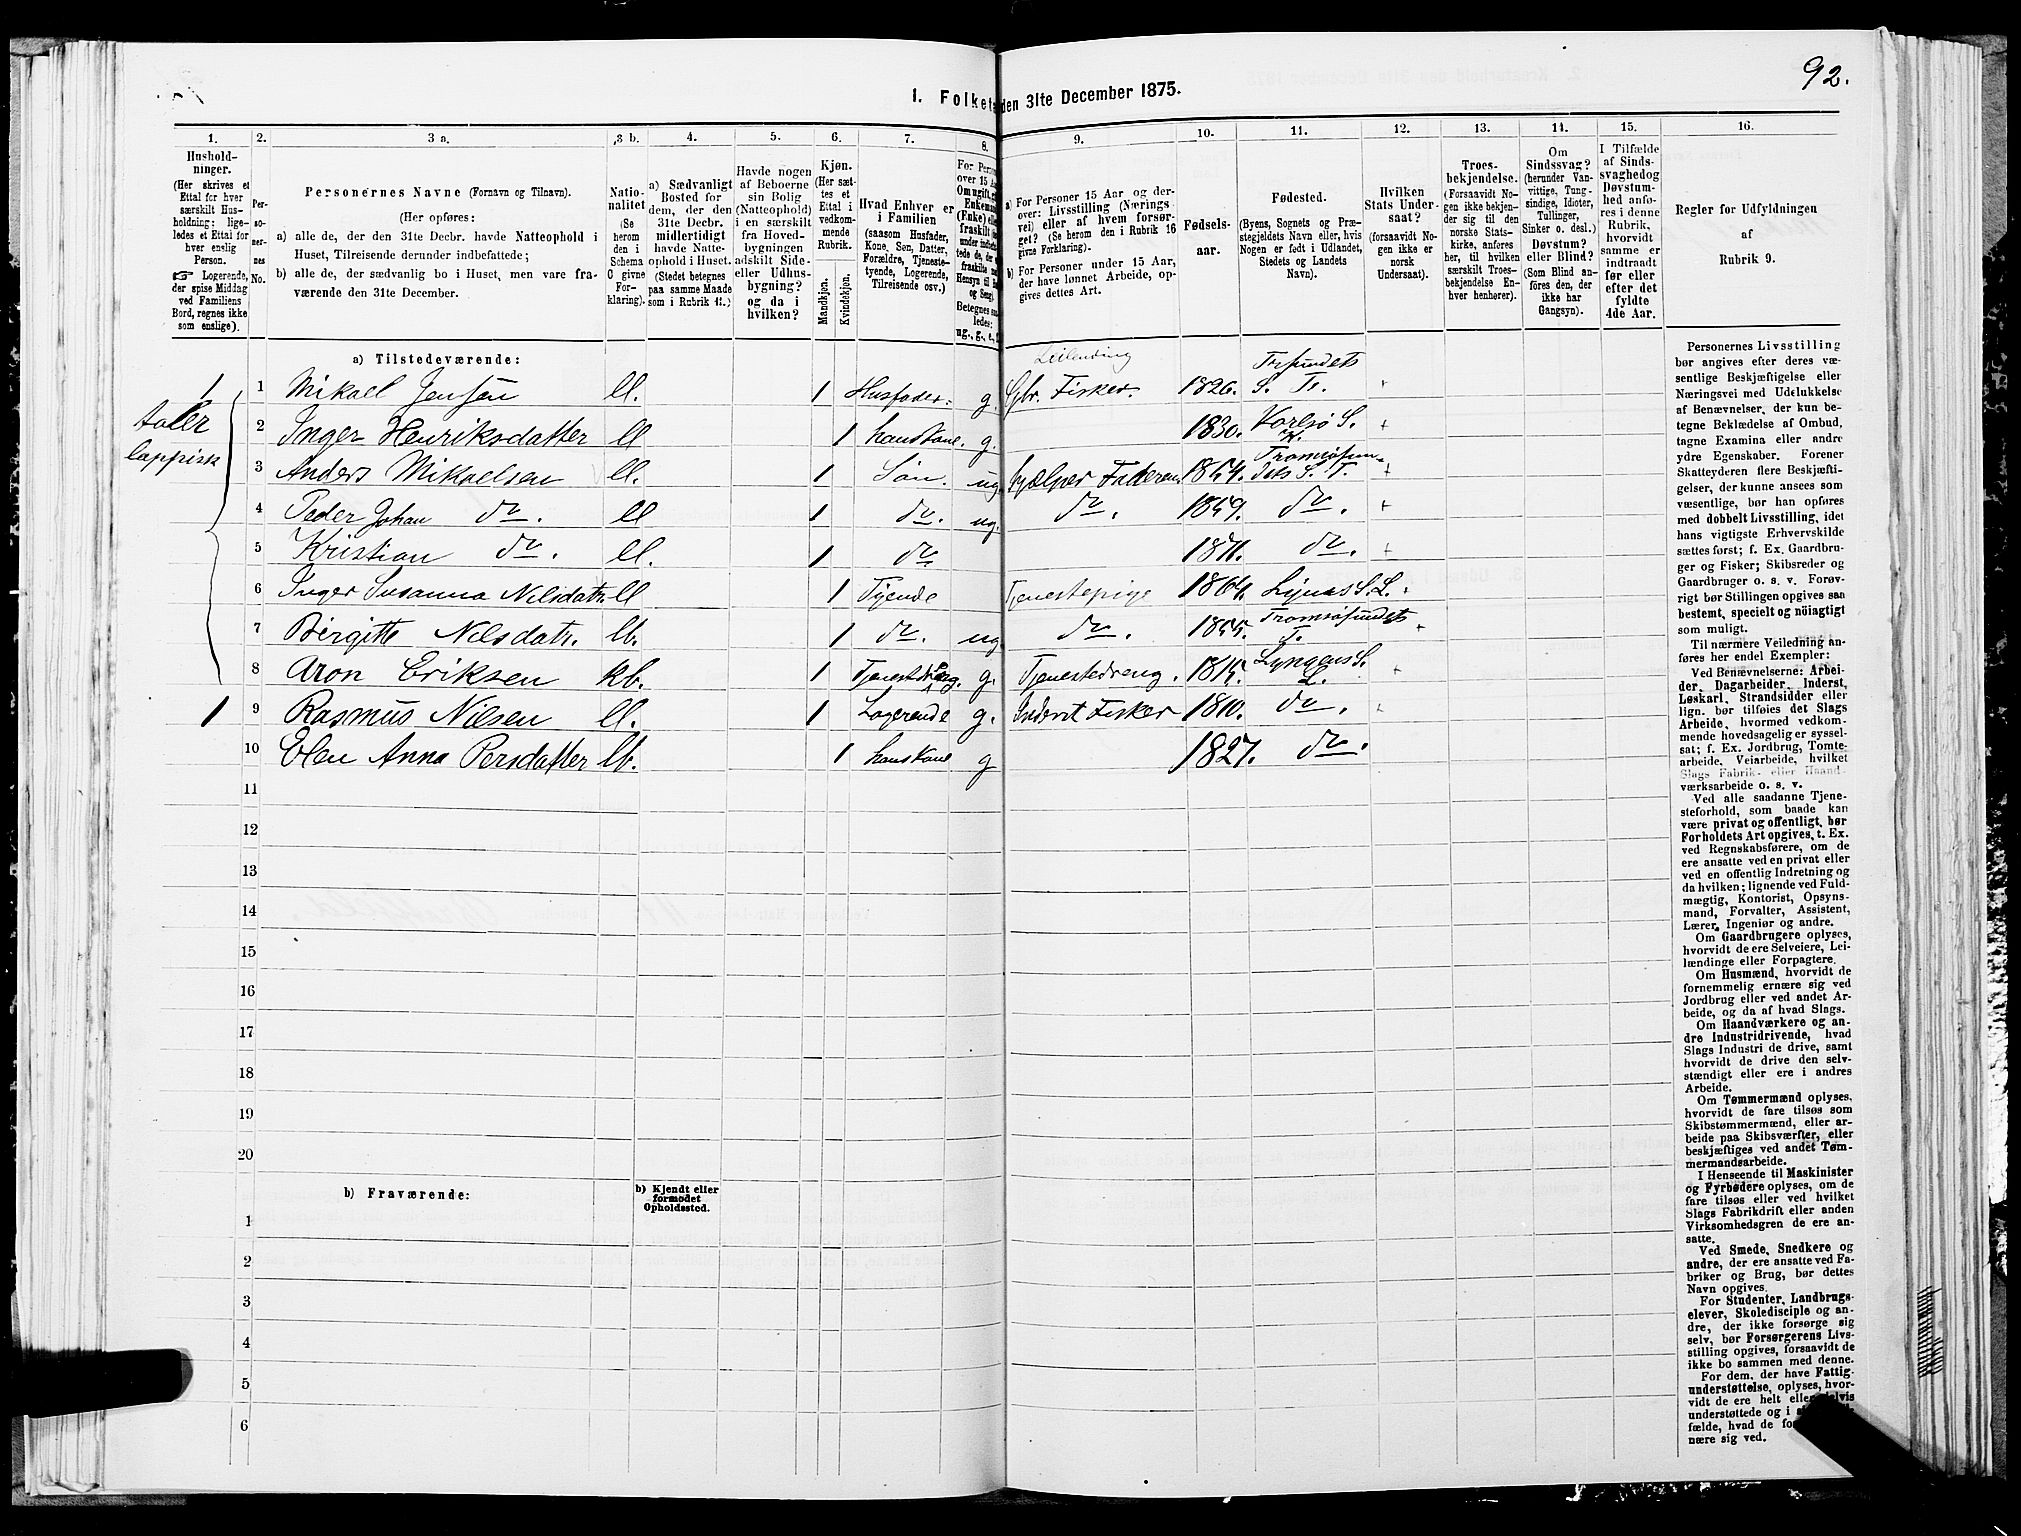 92.
1. Folket den 31te December 1875.
1. 2. 3 a. 3 b. 4. 5. 6. 7. 8. 9. 10. 11. 12. 13. 14. 15. 16.
Hushold-
ninger.
(Her skrives et
Ettal for hver
særskilt Hus-
holdning; lige-
ledes et Ettal for
hver enslig
Person.
☞ Logerende,
der spise Middag
ved Familiens
Bord, regnes ikke
som enslige).
Per-
so-
ner-
nes
No.
Personernes Navne (Fornavn og Tilnavn).
(Her opføres:
a) alle de, der den 31te Decbr. havde Natteophold i
Huset, Tilreisende derunder indbefattede;
b) alle de, der sædvanlig bo i Huset, men vare fra-
værende den 31te December.
Natio-
nalitet
(Se
herom
den i
Schema
O givne
For-
klaring).
a) Sædvanligt
Bosted for
dem, der den
31te Decbr.
midlertidigt
havde Natte-
ophold i Huset.
(Stedet betegnes
paa samme Maade
som i Rubrik 11.)
Havde nogen
af Beboerne
sin Bolig
(Natteophold)
i en særskilt
fra Hoved-
bygningen
adskilt Side-
eller Udhus-
bygning?
og da i
hvilken?
Kjøn.
(Her sæt-
tes et
Ettal i
vedkom-
mende
Rubrik.
Mandkjøn.
Kvindekjøn.
Hvad Enhver er
i Familien
(saasom Husfader,
Kone, Søn, Datter,
Forældre, Tjeneste-
tyende, Logerende,
Tilreisende osv.)
For Perso
over 15 Aa
Omugift, g
Enkema
(Enke) elle
fraskilt
Betegnes saa
ledes:
ug., g., e.,
a) For Personer 15 Aar og der-
over: Livsstilling (Nærings
vei) eller af hvem forsør-
get? (Se herom den i Rubrik 16
givne Forklaring).
b) For Personer under 15 Aar,
der have lønnet Arbeide, op-
gives dettes Art.
Fødsels-
aar.
Fødested.
(Byens, Sognets og Præ-
stegjeldets Navn eller, hvis
Nogen er født i Udlandet,
Stedets og Landets
Navn).
Hvilken
Stats Under-
saat?
(forsaavidt No-
gen ikke er
norsk
Undersaat).
Troes-
bekjendelse.
(Forsaavidt No-
gen ikke bekjen-
der sig til den
norske Stats-
kirke, anføres
her, til hvilken
særskilt Troes-
bekjendelse En-
hver henhører).
Om
Sindssvag?
(herunder Van-
vittige, Tung-
sindige, Idioter,
Tullinger,
Sinker o. desl.)
Døvstum?
eller Blind?
(Som Blind an-
føres den, der
ikke har
Gangsyn).
I Tilfælde
af Sinds-
svaghed og
Døvstum-
hed anfø-
res i denne
Rubrik,
hvorvidt
samme er
indtraadt
før eller
efter det
fyldte
4de Aar.
Regler for Udfyldningen
af
Rubrik 9.
a) Tilstedeværende:
Leilending
1 1 Mikael Jensen ll. 1 Husfader. g. Gbr. Fisker. 1826. Trsundets S. Tr.
taler lappisk
2 Inger Henriksdatter ll 1 hans Kone. g. 1830. Karlsø S. K.
3 Anders Mikaelsen ll. 1 Søn. ug. hjælper Faderen 1854. Tromsøsundets S. T.
4 Peder Johan do. ll 1 do. ug. do. 1859. do.
5 Kristian do. ll. 1 do 1871. do.
6 Inger Susanna Nilsdatr. ll 1 Tjende Tjenestepige 1864. Lyngs S. L.
7 Birgitte Nilsdatr. lb. 1 do. ug. do. 1855. Tromsøsundets T.
8 Aron Eriksen kb. 1 Tjenestdreng. g. Tjenestedreng. 1815. Lyngens S. L.
1 9 Rasmus Nilsen ll. 1 Logerende g. Inderst Fisker 1810. do.
10 Elen Anna Persdatter lb. 1 hans Kone g 1827. do.
11
12
13
14
15
16
17
18
19
20
b) Fraværende:
b) Kjendt eller
formodet
Opholdssted.
1
2
3
4
5
6
Personernes Livsstilling
bør angives efter deres væ-
sentlige Beskjæftigelse eller
Næringsvei med Udelukkelse
af Benævnelser, der kun be-
tegne Beklædelse af Ombud,
tagne Examina eller andre
ydre Egenskaber. Forener
Skatteyderen flere Beskjæfti-
gelser, der kunne ansees som
væsentlige, bør han opføres
med dobbelt Livsstilling, idet
hans vigtigste Erhvervskilde
sættes først; f. Ex. Gaardbru-
ger og Fisker; Skibsreder og
Gaardbruger o. s. v. Forøv-
rigt bør Stillingen opgives saa
bestemt, specielt og nöiagtigt
som muligt.
Til nærmere Veiledning an-
føres her endel Exempler:
Ved Benævnelserne: Arbei-
der, Dagarbeider, Inderst,
Løskarl, Strandsidder eller
lign. bør tilføies det Slags
Arbeide, hvormed vedkom-
mende hovedsagelig er syssel-
sat; f. Ex. Jordbrug, Tomte-
arbeide, Veiarbeide, hvilket
Slags Fabrik- eller Haand-
værksarbeide o. s. v.
Ved alle saadanne Tjene-
steforhold, som baade kan
være privat og offentligt, bør
Forholdets Art opgives, t. Ex.
ved Regnskabsførere, om de
ere ansatte ved en privat eller
ved en offentlig Indretning og
da hvilken; lignende ved Fuld-
mægtig, Kontorist, Opsyns-
mand, Forvalter, Assistent,
Lærer, Ingeniør og andre.
Om Gaardbrugere oplyses,
hvorvidt de ere Selveiere, Lei-
lændinge eller Forpagtere.
Om Husmænd, hvorvidt de
fornemmelig ernære sig ved
Jordbrug eller ved andet Ar-
beide, og da af hvad Slags.
Om Haandværkere og an-
dre Industridrivende, hvad
Slags Industri de drive, samt
hvorvidt de drive den selv-
stændigt eller ere i andres
Arbeide.
Om Tømmermænd oplyses,
hvorvidt de fare tilsøs som
Skibstømmermænd, eller ar-
beide paa Skibsværfter, eller
beskjæftiges ved andet Tøm-
mermandsarbeide.
I Henseende til Maskinister
og Fyrbødere oplyses, om de
fare tilsøs eller ved hvilket
Slags Fabrikdrift eller anden
Virksomhedsgren de ere an-
satte.
Ved Smede, Snedkere og
andre, der ere ansatte ved Fa-
briker og Brug, bør dettes
Navn opgives.
For Studenter, Landbrugs-
elever, Skoledisciple og an-
dre, der ikke forsørge sig
selv, bør Forsørgerens Livs-
stilling opgives, forsaavidt de
ikke bo sammen med denne.
For dem, der have Fattig-
understøttelse, oplyses, hvor-
vidt de ere helt eller delvis
understøttede og i
fælde, hvad de
nære sig ved.